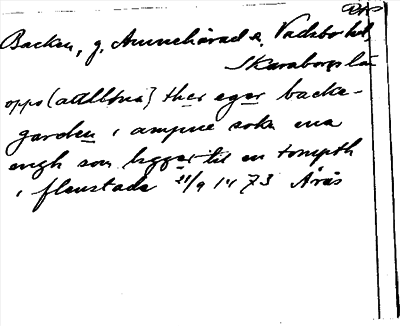 Backen, g. Amnehärad s. Vadsbo hd,
Skaraborgs län
oppa (attlösa) ther eger backe-
garden i ampne sokn ena
engh som ligger til en tompth
i flenstada 21/9 1473 Årås